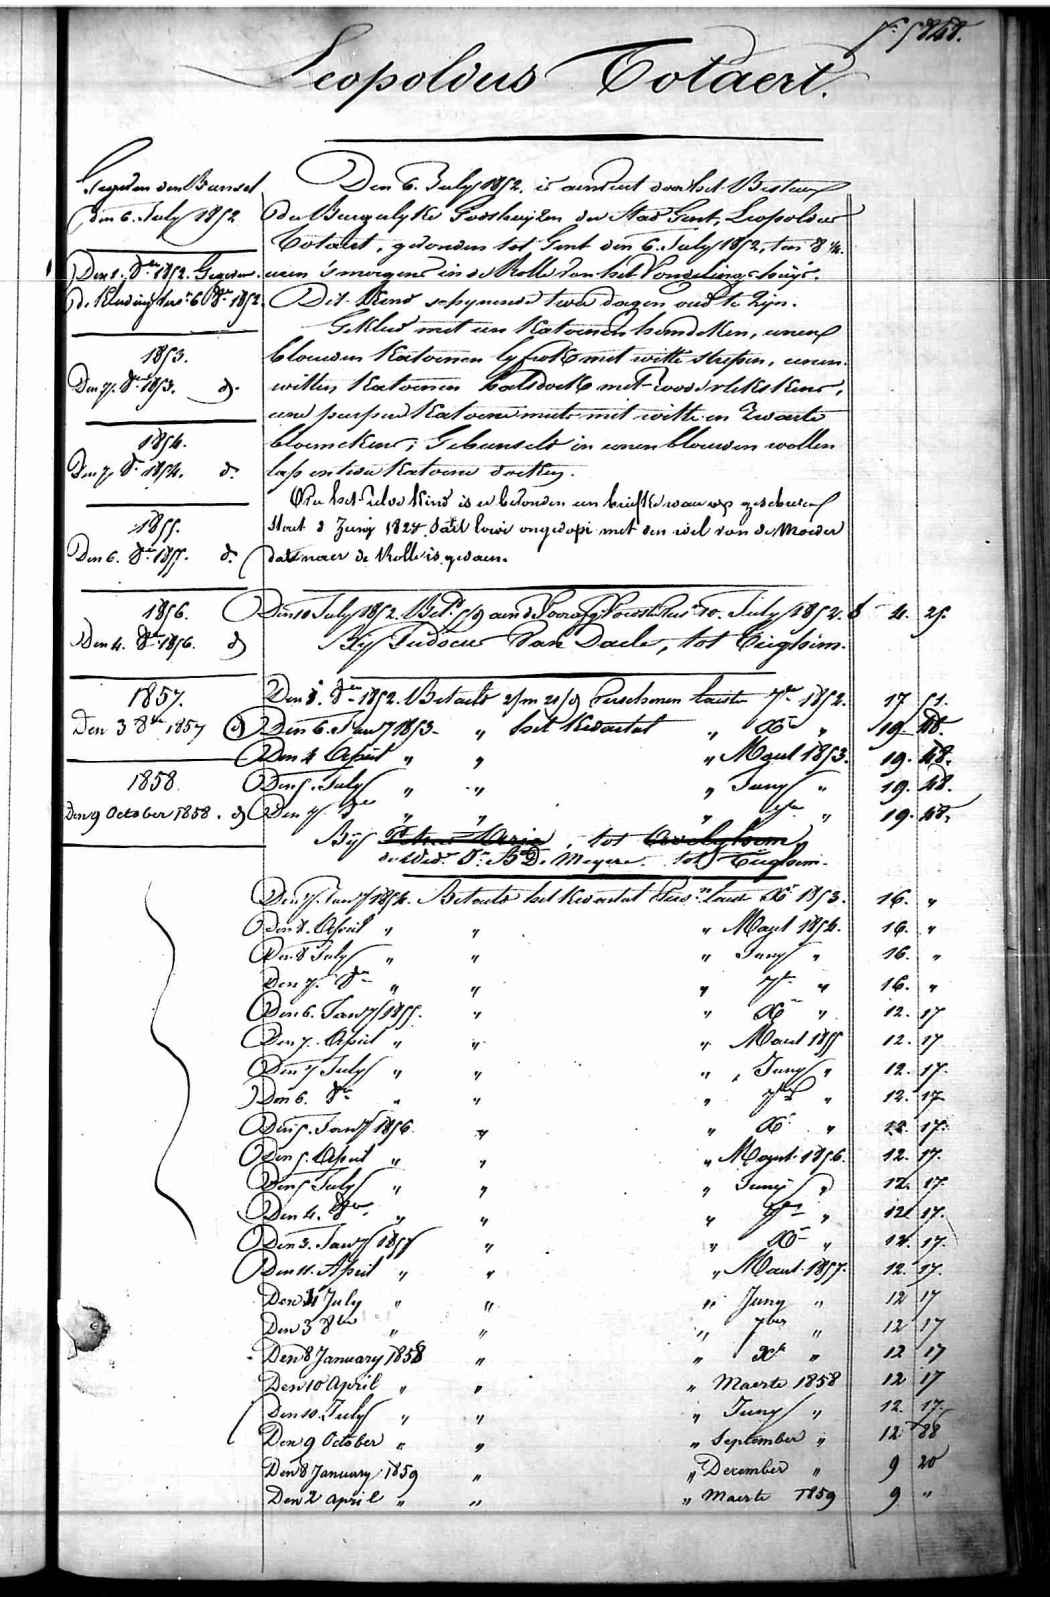 Leopoldus Totaert.
Gegeven den Bunsel
den 6. July 1852
Den 1. 8er 1852. Gegeven
de Kleeding
1853.
Den 7. 8er 1853. d.
1854.
Den 7 8er 1854. d.
1855.
Den 6. 8er 1855. d.
1856.
Den 4. 8er 1856. d
1857.
Den 3 8ber 1857 d
1858.
Den 9 October 1858. d
Den 6. July 1852. is aenveert door het Bestuer
der Burgerlyke Godshuyzen der Stad Gent, Leopoldus
Totaert, gevonden tot Gent den 6. July 1852, ten 8 1/4
uren 's morgens in de Rolle van het Vondelinghuys.
Dit Kind schynende twee dagen oud te zyn.
Gekleed met een Katoenen hemdeken, eenen
blauwen Katoenen lyfrok met witte strepen, eenen
witten Katoenen halsdoek met
eene purper Katoene muts met witte en zwarte
bloemekens; Gebunseld in eenen blauwen wollen
lap en twee Katoene doeken.
het zelve Kind is er bevonden een briefke waer op geschreven
met den wel van de Moeder
dat naer de Rolle is gedaen.
Den 10 July 1852. 10. July 1852. 4. 25.
Bij Judocus Van Daele, tot
Den 1. 8er 1852. Betaeld 2/m 21/d Verschenen laeste 7er 1852. 17 51.
Den 6. Jany 1853. " het Kwartael " Xr " 19 48.
Den 4 April " " " Maert 1853. 19. 48.
Den 5. July " " " Juny " 19. 48.
Den 7 8er " " " 7er " 19. 48.
Bij Maria, tot
de Wed. De Meyere tot
Den 7. Jany 1854. Betaeld het Kwartael Xr 1853. 16. "
Den 8. April " " " Maert 1854. 16. "
Den 8 July " " " Juny " 16. "
Den 7. 8er " " " 7er " 16. "
Den 6. Jany 1855. " " Xr " 12. 17
Den 7. April " " " Maert 1855 12. 17
Den 7 July " " " Juny " 12. 17.
Den 6. 8er " " " 7er " 12. 17
Den 5. Jany 1856. " " Xr " 12. 17.
Den 5. April " " " Maert 1856. 12. 17.
Den 5 July " " " Juny " 12. 17.
Den 4. 8er " " " 7er " 12 17.
Den 3. Jany 1857 " " Xr " 12. 17.
Den 11. April " " " Maert 1857. 12. 17.
Den July " " " Juny " 12 17
Den 3 8ber " " " 7ber " 12 17
Den 8 January 1858 " " Xr " 12 17
Den 10 April " " " Maerte 1858 12 17
Den 10. July " " " Juny " 12. 17.
Den 9 October " " " September " 12 88
Den 8 January 1859 " " December " 9 20
Den 2 April " " " Maerte 1859 9 "